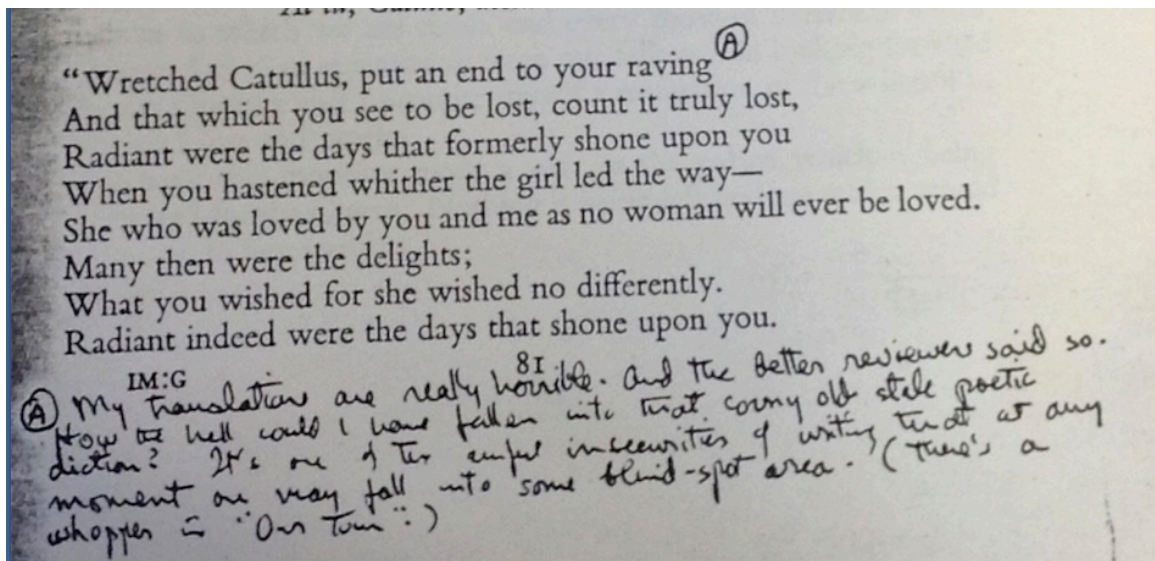 “Wretched Catullus, put an end to your raving Ⓐ
And that which you see to be lost, count it truly lost,
Radiant were the days that formerly shone upon you
When you hastened whither the girl led the way—
She who was loved by you and me as no woman will ever be loved.
Many then were the delights;
What you wished for she wished no differently.
Radiant indeed were the days that shone upon you.
IM:G 81
Ⓐ My translations are really horrible. And the better reviewers said so.
How the hell could I have fallen into that corny old stale poetic
diction? It's one of the awful insecurities of writing that at any
moment one may fall into some blind-spot area. (There's a
whopper in "Our Town".)